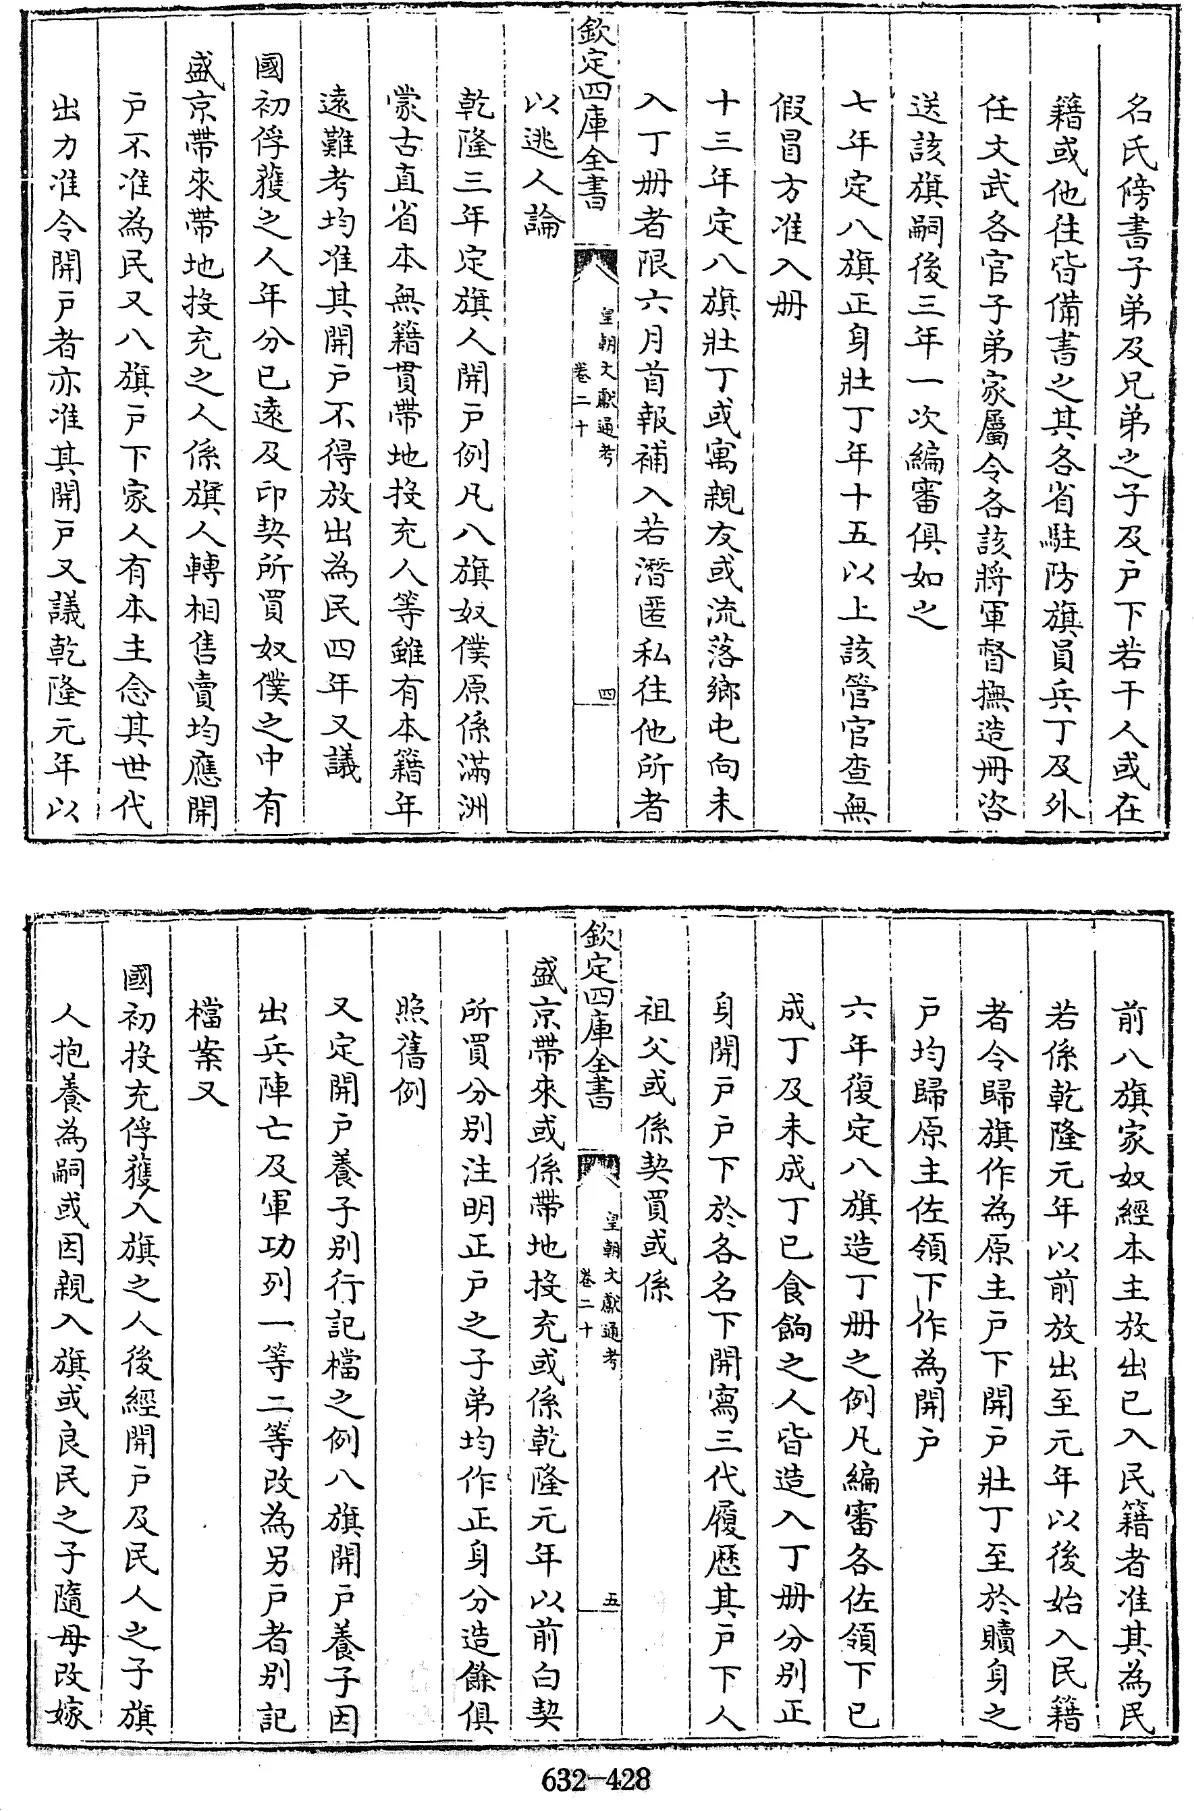 名氏傍書子弟及兄弟之子及户下若干人或在
籍或他徃皆備書之其各省駐防旗員兵丁及外
任文武各官子弟家屬令各該將軍督撫造冊咨
送該旗嗣後三年一次編審俱如之
七年定八旗正身壯丁年十五以上該管官查無
假冒方准入冊
十三年定八旗壯丁或寓親友或流落鄉屯向未
入丁冊者限六月首報補入若潛匿私往他所者
欽定四庫全書
皇朝文獻通考
卷二十
四
以逃人論
乾隆三年定旗人開户例凡八旗奴僕原係滿洲
蒙古直省本無籍貫帶地投充人等雖有本籍年
遠難考均准其開户不得放出為民四年又議
國初俘獲之人年分已遠及印契所買奴僕之中有
盛京帶來帶地投充之人係旗人轉相售賣均應開
户不准為民又八旗户下家人有本主念其世代
出力准令開户者亦准其開户又議乾隆元年以
前八旗家奴經本主放出已入民籍者准其為民
若係乾隆元年以前放出至元年以後始入民籍
者令歸旗作為原主户下開户壯丁至於贖身之
户均歸原主佐領下作為開户
六年復定八旗造丁冊之例凡編審各佐領下已
成丁及未成丁已食餉之人皆造入丁冊分別正
身開户户下於各名下開寫三代履歷其户下人
祖父或係契買或係
欽定四庫全書
皇朝文獻通考
卷二十
五
盛京帶來或係帶地投充或係乾隆元年以前白契
所買分別注明正户之子弟均作正身分造餘俱
照舊例
又定開户養子別行記檔之例八旗開户養子因
出兵陣亡及軍功列一等二等改為另户者別記
檔案又
國初投充俘獲入旗之人後經開户及民人之子旗
人抱養為嗣或因親入旗或良民之子隨母改嫁
632-428